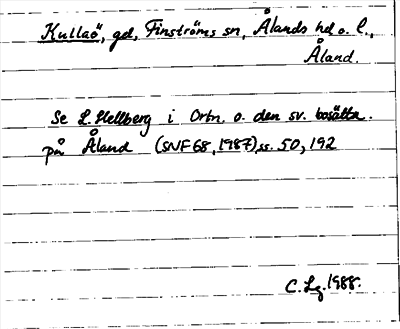 Kullaö, gd, Finströms sn, Ålands hd o. l.,
Åland.
Se L. Hellberg i Ortn. o. den sv. bosättn.
på Åland (SNF 68, 1987), ss. 50, 192
C. Lg. 1988.